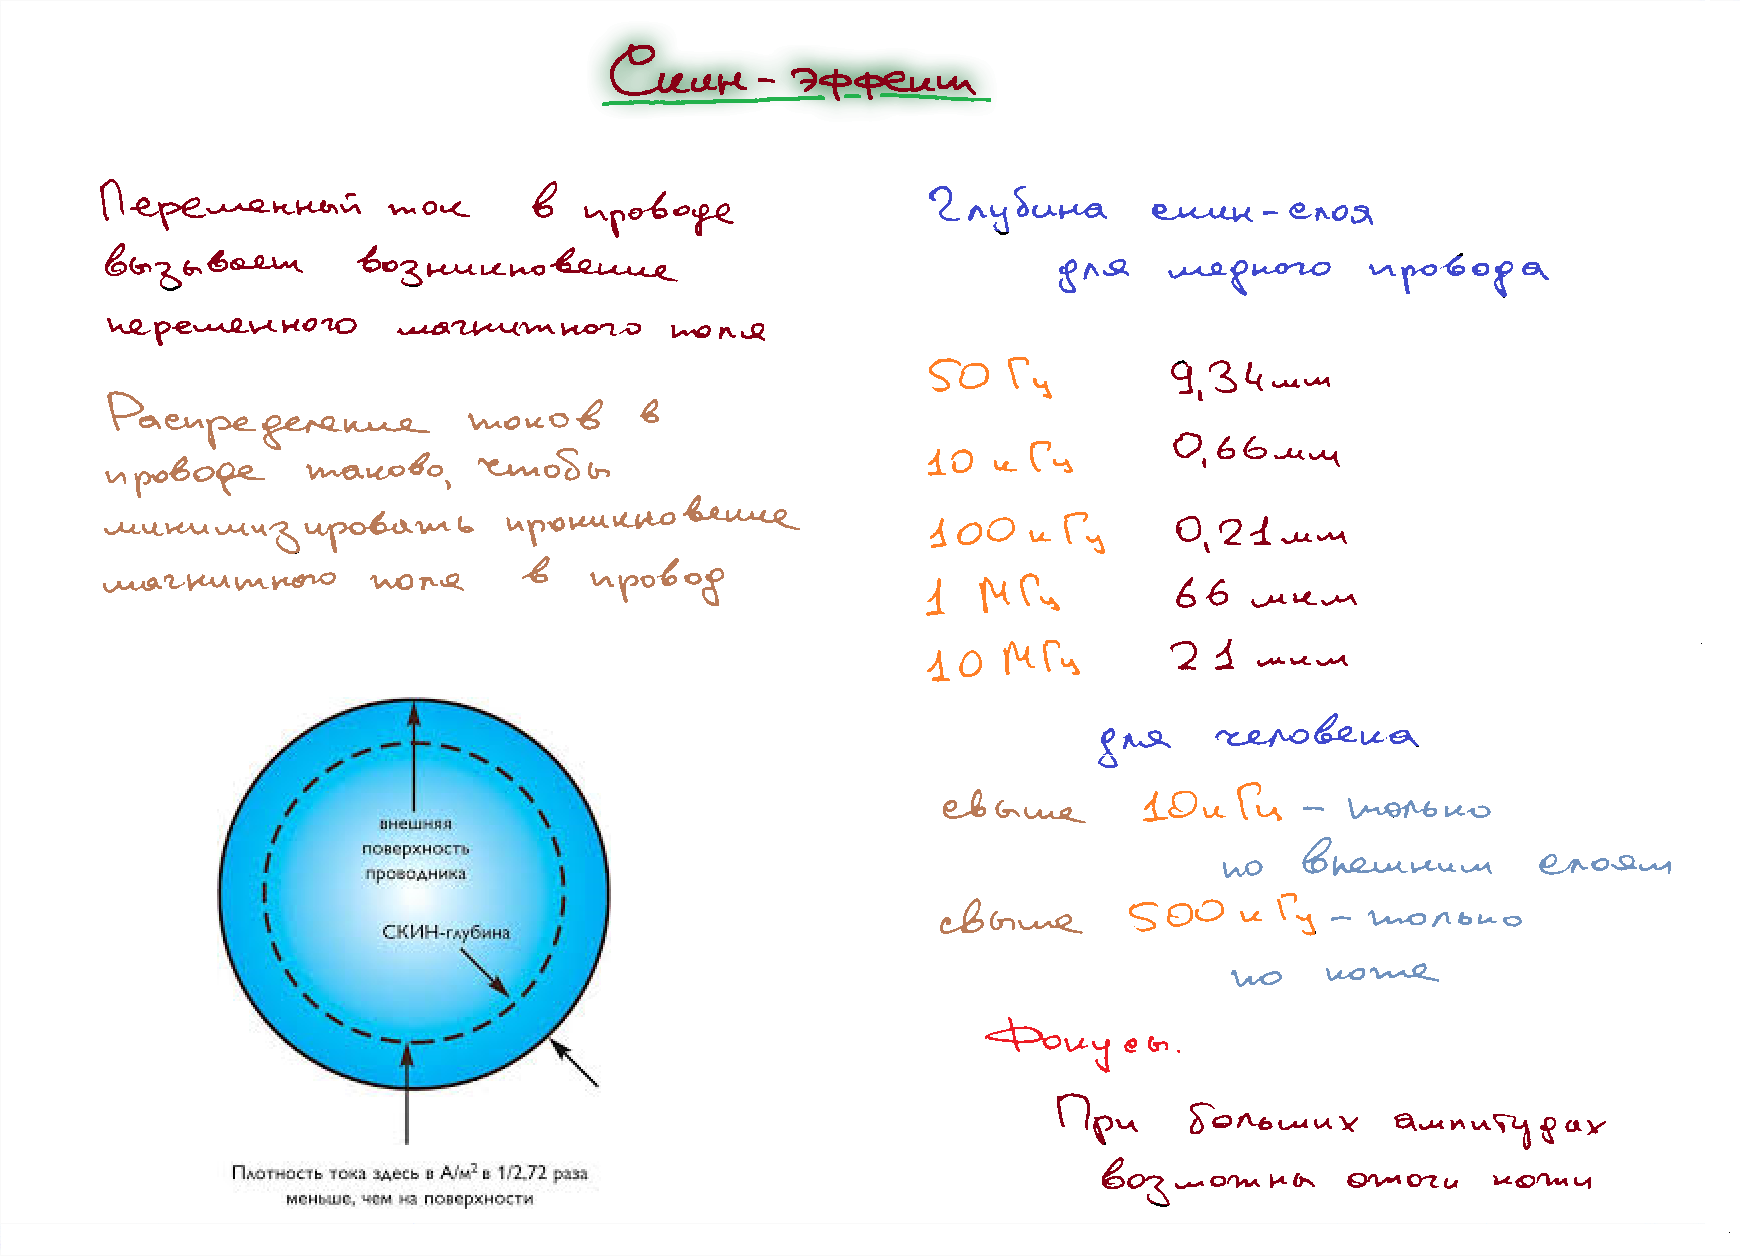 Скин-эффект
Переменный ток в проводе
вызывает возникновение
переменного магнитного поля
Распределение токов в
проводе таково, чтобы
минимизировать проникновение
магнитного поля в провод
внешняя
поверхность
проводника
СКИН-глубина
Плотность тока здесь в А/м² в 1/2,72 раза
меньше, чем на поверхности
Глубина скин-слоя
для медного провода
50 Гц 9,34мм
10 кГц 0,66мм
100 кГц 0,21мм
1 МГц 66 мкм
10 МГц 21 мкм
для человека
свыше 10кГц - только
по внешним слоям
свыше 500кГц - только
по коже
Фокусы.
При больших ампитудах
возможны ожоги кожи